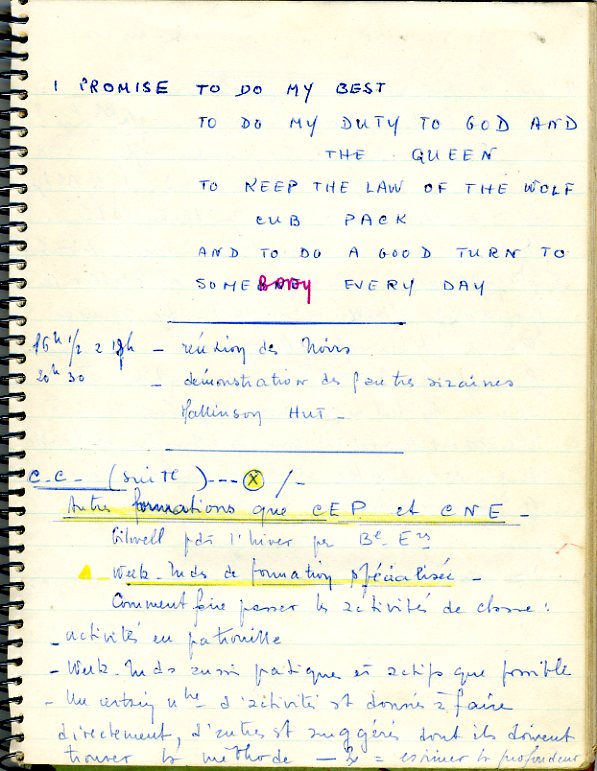 I PROMISE TO DO MY BEST
TO DO MY DUTY TO GOD AND
THE QUEEN
TO KEEP THE LAW OF THE WOLF
CUB PACK
AND TO DO A GOOD TURN TO
SOMEBODY EVERY DAY
16h 1/2 à 18h - réunion des Noirs
20h 30 - démonstration des autres sizaines
Mallinson Hut -
C.C. (suite) --- X /-
Autres formations que CEP et CNE -
Gilwell pdt l'hiver par
Week-ends de formation spécialisée -
Comment faire passer les activités de classe :
- activités en patrouille
- Week-ends aussi pratiques et actifs que possible
- Un certain nbre d'activités st donnés à faire
directement, d'autres st suggérés dont ils doivent
trouver la méthode - = estimer la profondeur